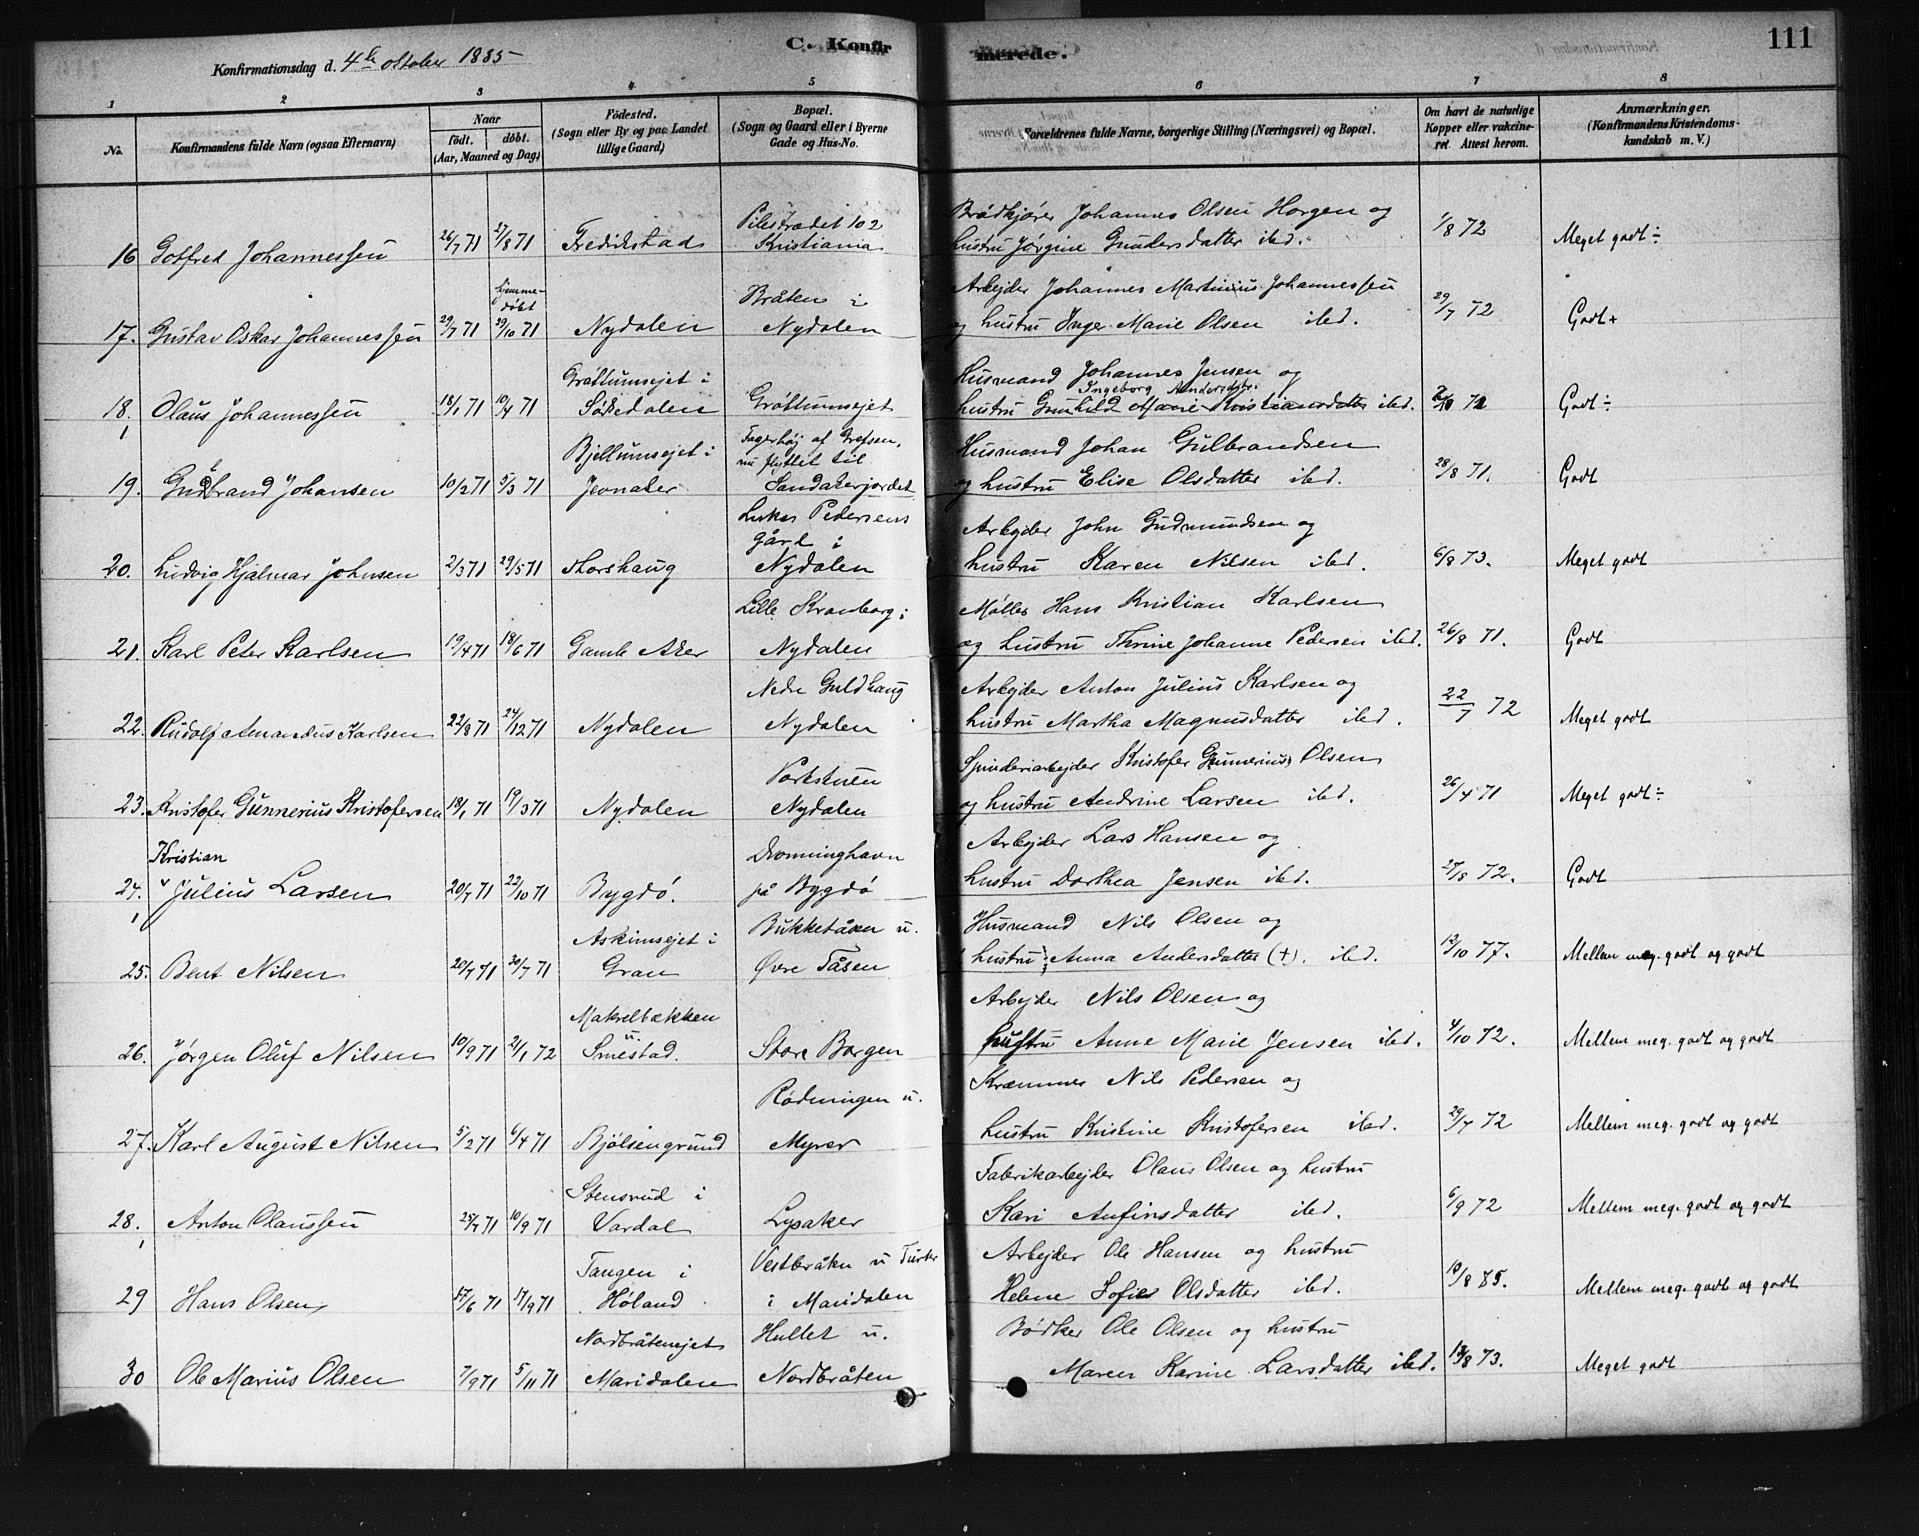 Konfirmationsdag d. 4de oktober 1885
C. Konfirmerede.
111
1 2 3 4 5 6 7 8
No.
Konfirmandens fulde Navn (ogsaa Efternavn)
Naar
födt. döbt.
(Aar, Maaned og Dag)
Födested.
(Sogn eller By og paa Landet
tillige Gaard)
Bopæl.
(Sogn og Gaard eller i Byerne
Gade og Hus-No.
Forældrenes fulde Navne, borgerlige Stilling (Næringsvei) og Bopæl.
Om havt de naturlige
Kopper eller vakcine-
ret. Attest herom.
Anmærkninger.
(Konfirmandens Kristendoms-
kundskab m. V.)
Pilestrædet 102 Brödkjører Johannes Olsen Horgen og
16 Gotfred Johannessen 26/7 71 27/8 71 Fredrikstad Kristiania hustru Jørgine Gundersdatter ibd. 1/8 72 Meget godt ÷
hjemme-
döbt Bråten i Arbejder Johannes Martinius Johannessen
17. Gustav Oskar Johannessen 29/7 71 29/10 71 Nydalen Nydalen og hustru Inger Marie Olsen ibd. 29/7 72 Godt +
Gråttumsejet i Husmand Johannes Jensen og
Ingeborg Andersdtr.
18. Olaus Johannessen 18/1 71 10/4 71 Sørkedalen Gråttumsejet hustru Gunhild Marie Kristiansdatter ibd. Godt ÷
Bjellumsejet i Fagerhøj af Grefsen, Husmand Johan Gulbrandsen
nu flyttet til
19. Gudbrand Johansen 10/2 71 5/3 71 Jevnaker Sandakerjordet og hustru Elise Olsdatter ibd. 28/8 71. Godt
Lukas Pedersens Arbejder John Gudmundsen og
gård i
20. Ludvig Hjalmar Johnsen 2/3 71 29/5 71 Thorshaug Nydalen hustru Karen Nilsen ibd. 6/8 73. Meget godt
Lille Kronborg i Møller Hans Kristian Karlsen
21. Karl Peter Karlsen 19/4 71 18/6 71 Gamle Aker Nydalen og hustru Thrine Johanne Pedersen ibd. 26/8 71. Godt
Nedre Guldhaug Arbejder Anton Julius Karlsen og
22. Rudolf Amandus Karlsen 22/8 71 24/12 71 Nydalen Nydalen hustru Martha Magnusdatter ibd. 22/7 72 Meget godt
Portstuen Spinderiarbejder Kristofer Gunnerius Olsen
23. Kristofer Gunnerius Kristofersen 18/1 71 19/3 71 Nydalen Nydalen og hustru Andrine Larsen ibd. 26/4 71 Meget godt ÷
Kristian Dronninghavn Arbejder Lars Hansen og
24. Julius Larsen 20/7 71 22/10 71 Bygdö. på Bygdö hustru Dorthea Jensen ibd. 27/8 72. Godt
Askimsejet i Bukketåken u. Husmand Nils Olsen og
25. Bent Nilsen 20/7 71 30/7 71 Gran Øvre Tåsen hustru Anna Andersdatter (+). ibd. 12/10 77. Mellem meg. godt og godt
Makrelbækken Arbejder Nils Olsen og
u.
26. Jørgen Oluf Nilsen 10/9 71 21/1 72 Smestad. Store Borgen hustru Anne Marie Jensen ibd. 4/10 72. Mellem meg. godt og godt
Rødningen u. Kræmmer Nils Pedersen og
27. Karl August Nilsen 5/2 71 6/4 71 Bjølsengrund Myrer hustru Kristine Kristofersen ibd. 29/7 72 Mellem meg. godt og godt
Stensrud i Fabrikarbejder Olaus Olsen og hustru
28. Anton Olaussen 25/7 71 10/9 71 Vardal Lysaker Kari Anfinsdatter ibd. 6/9 72 Mellem meg. godt og godt
Tangen i Vestbråten u Turter Arbejder Ole Hansen og hustru
29 Hans Olsen 17/6 71 17/9 71 Høland i Maridalen Helene Sofie Olsdatter ibd. 10/8 85. Mellem meg. godt og godt
Nordbråtenejet Hullet u. Bødker Ole Olsen og hustru
30 Ole Marius Olsen 7/9 71 5/11 71 Maridalen Nordbråten Maren Karine Larsdatter ibd. 12/8 73. Meget godt